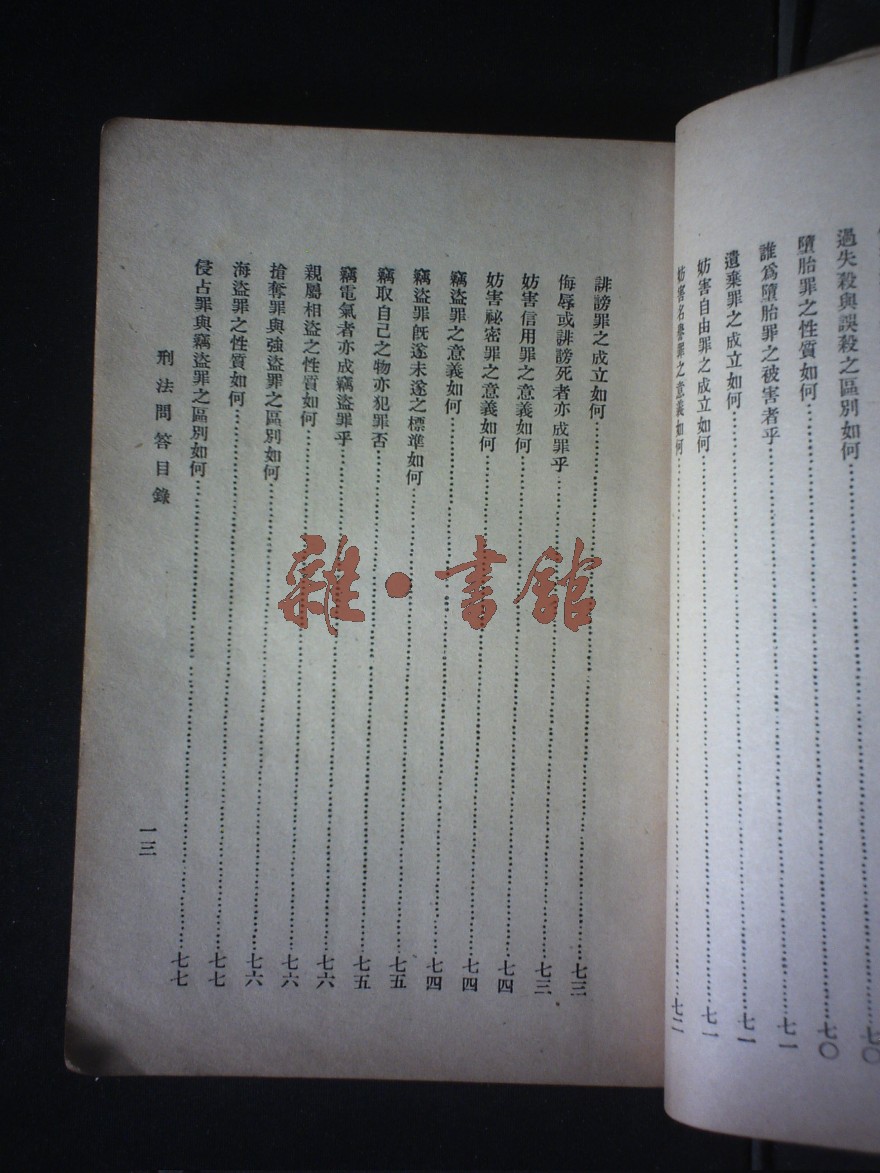 過失殺與誤殺之區別如何……七〇
墮胎罪之性質如何……七〇
誰爲墮胎罪之被害者乎……七一
遺棄罪之成立如何……七一
妨害自由罪之成立如何……七一
妨害名譽罪之意義如何……七二
誹謗罪之成立如何……七三
侮辱或誹謗死者亦成罪乎……七三
妨害信用罪之意義如何……七四
妨害祕密罪之意義如何……七四
竊盜罪之意義如何……七四
竊盜罪旣遂未遂之標準如何……七五
竊取自己之物亦犯罪否……七五
竊電氣者亦成竊盜罪乎……七六
親屬相盜之性質如何……七六
搶奪罪與強盜罪之區別如何……七六
海盜罪之性質如何……七七
侵占罪與竊盜罪之區別如何……七七
刑法問答目錄
一三
雜·書館